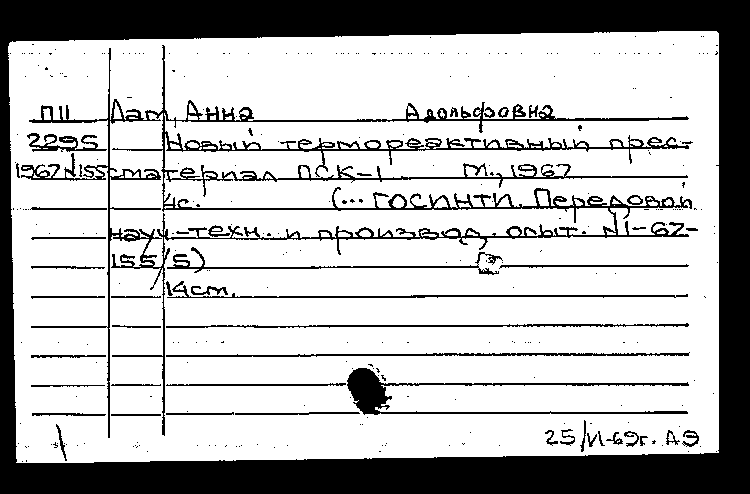 ПII Лат, Анна Адольфовна
2295 Новый термореактивный прес-
1967 №155 сматериал ПСК-1 М., 1967
4с. (... ГОСИНТИ. Передовой
науч.-техн. и производ. опыт. №1-67-
155/5)
14см.
25/VI-69г. АЭ